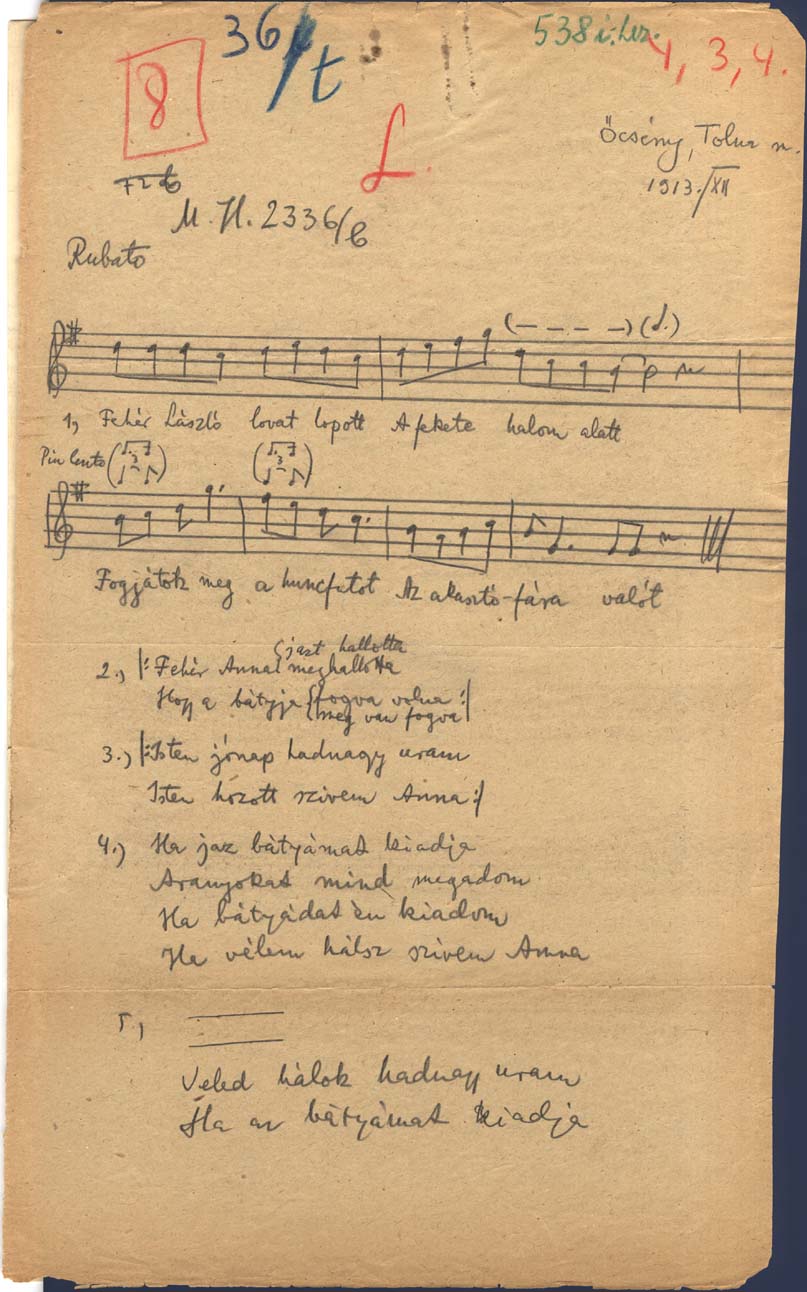 36/t
538 i:
4, 3, 4.
8
L.
Őcsény, Tolna m.
1913./XII
72 b
M. H. 2336/b
Rubato
1, Fehér László lovat lopott A fekete halom alatt
Piu lento
Fogjátok meg a huncfutot Az akasztó-fára valót
(jazt hallotta
2.) |: Fehér Anna meghallotta
Hogy a bátyja {fogva volna :|
(meg van fogva
3.) |: Isten jónap hadnagy uram
Isten hozott szivem Anna :|
4.) Ha jaz bátyámat kiadja
Aranyokat mind megadom
Ha bátyádat én kiadom
Ha vélem hálsz szivem Anna
5,
Veled hálok hadnagy uram
Ha az bátyámat kiadja